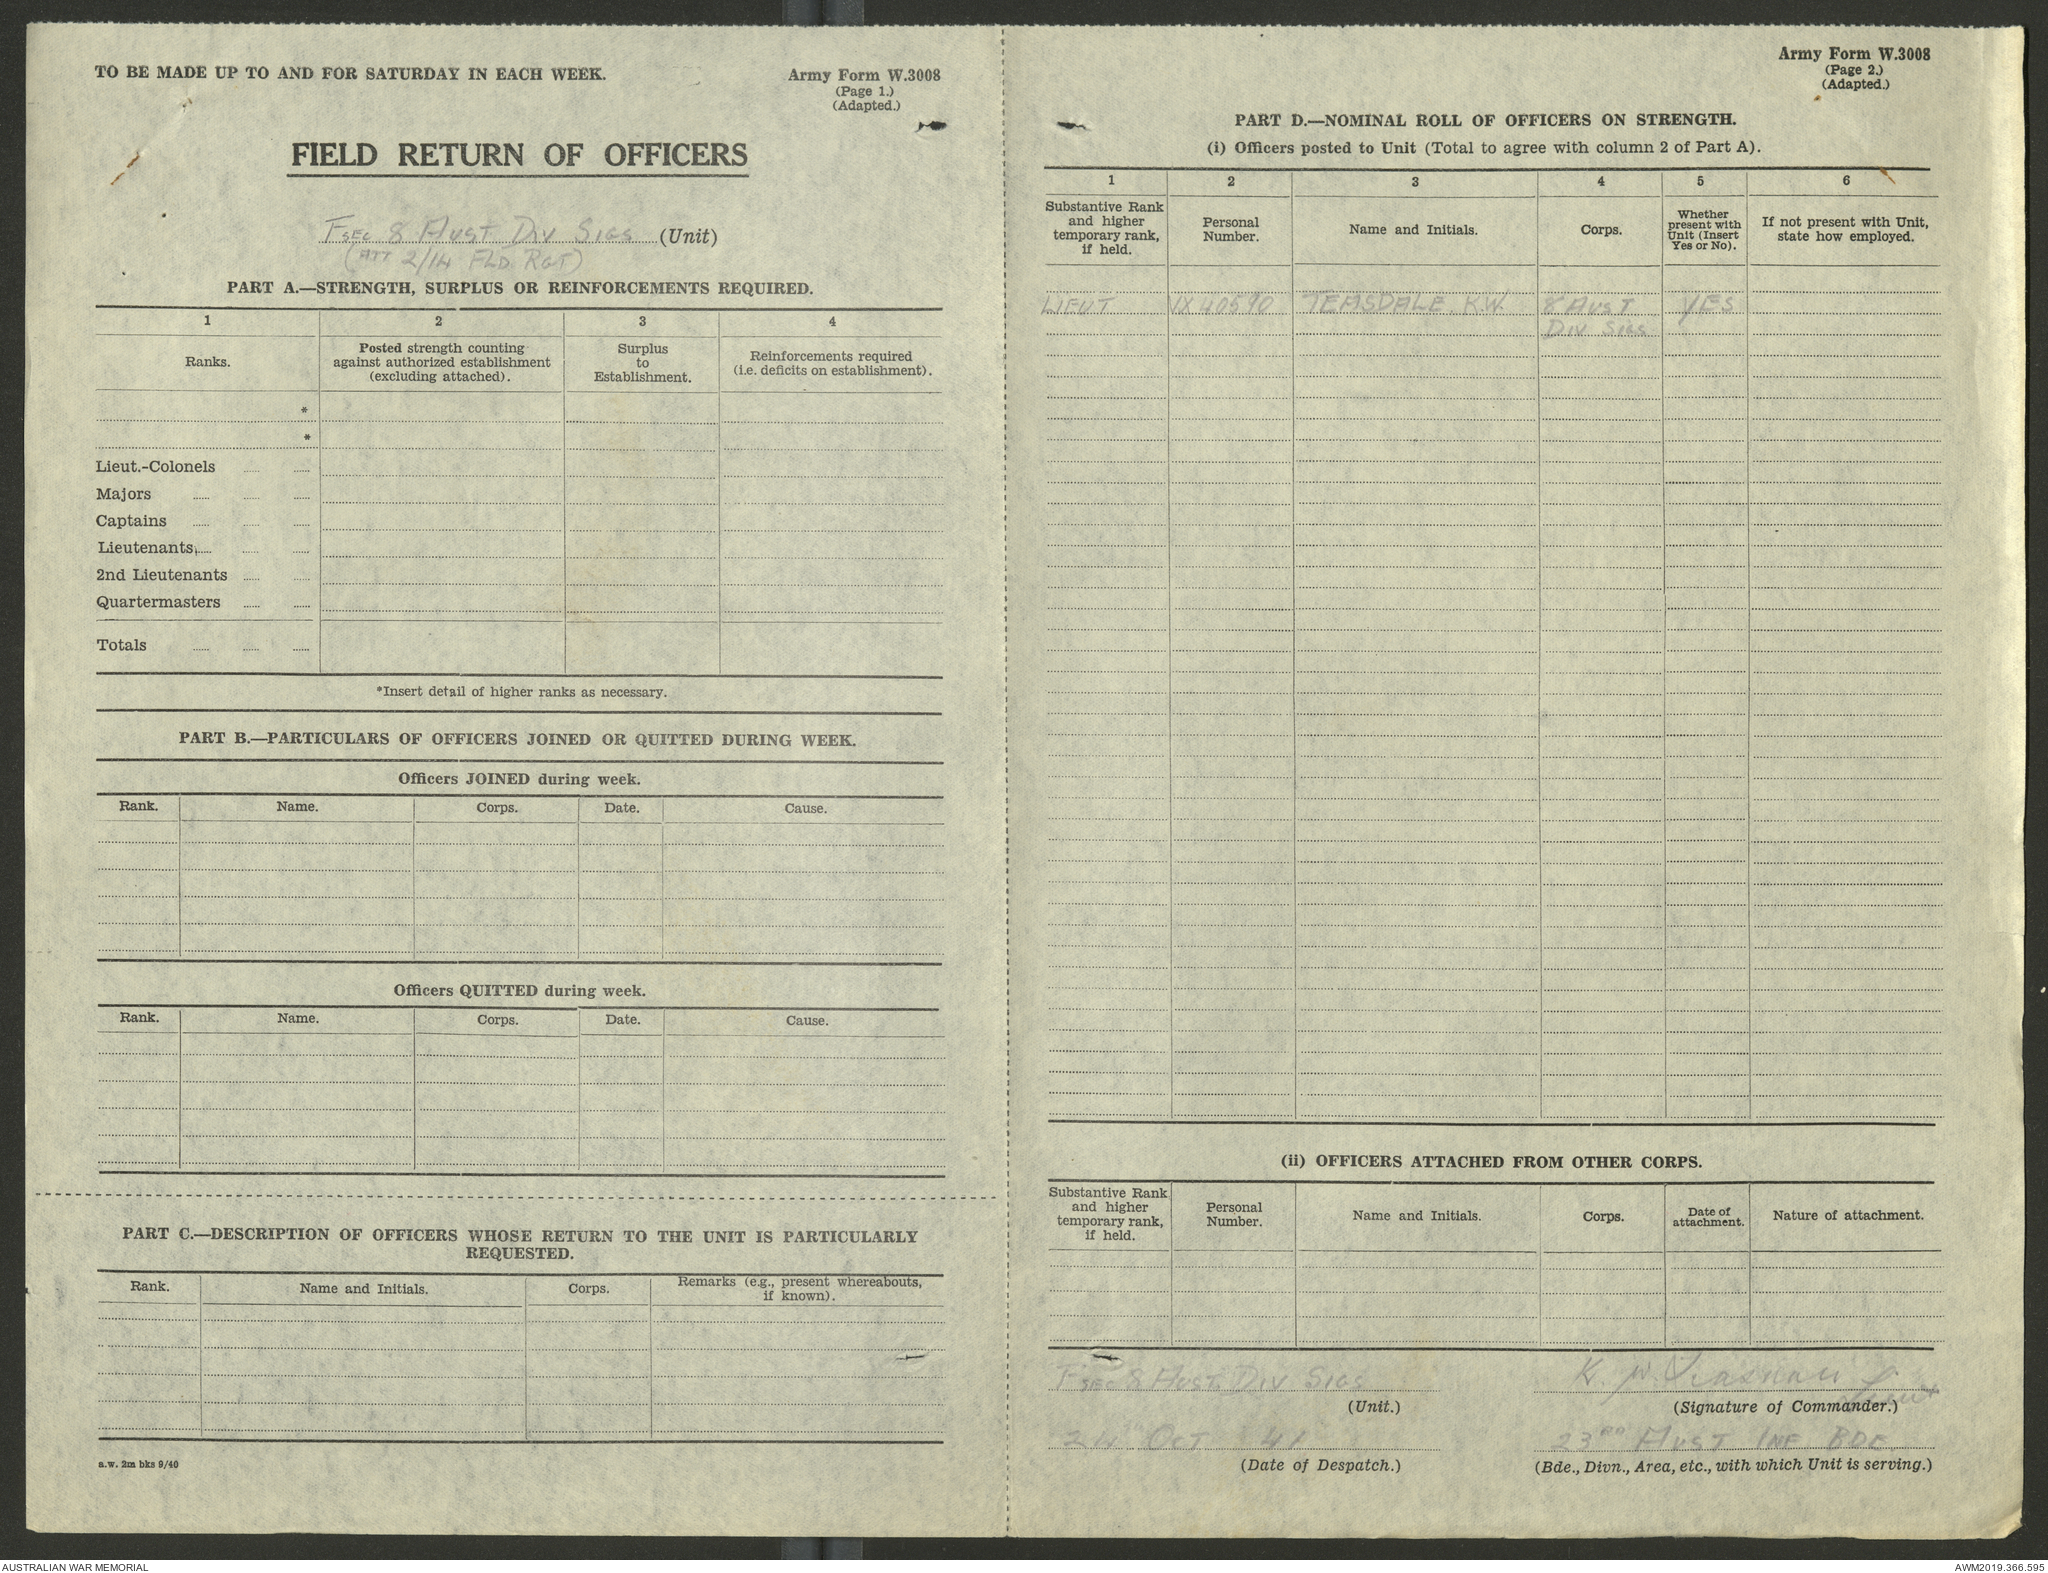 TO BE MADE UP TO AND FOR SATURDAY IN EACH WEEK.
Army Form W.3008
(Page 1.)
(Adapted.)
FIELD RETURN OF OFFICERS
F SEC 8 AUST DIV SIGS (Unit)
(ATT 2/14 FLD RGT)
PART A.—STRENGTH, SURPLUS OR REINFORCEMENTS REQUIRED.
1 2 3 4
Ranks.
Posted strength counting against authorized establishment (excluding attached).
Surplus to Establishment.
Reinforcements required (i.e. deficits on establishment).
*
*
Lieut.-Colonels
Majors
Captains
Lieutenants
2nd Lieutenants
Quartermasters
Totals
*Insert detail of higher ranks as necessary.
PART B.—PARTICULARS OF OFFICERS JOINED OR QUITTED DURING WEEK.
Officers JOINED during week.
Rank. Name. Corps. Date. Cause.
Officers QUITTED during week.
Rank. Name. Corps. Date. Cause.
PART C.—DESCRIPTION OF OFFICERS WHOSE RETURN TO THE UNIT IS PARTICULARLY
REQUESTED.
Rank. Name and Initials. Corps. Remarks (e.g., present whereabouts, if known).
a.w. 2m bks 9/40
Army Form W.3008
(Page 2.)
(Adapted.)
PART D.—NOMINAL ROLL OF OFFICERS ON STRENGTH.
(i) Officers posted to Unit (Total to agree with column 2 of Part A).
1 2 3 4 5 6
Substantive Rank and higher temporary rank, if held.
Personal Number.
Name and Initials.
Corps.
Whether present with Unit (Insert Yes or No).
If not present with Unit, state how employed.
LIEUT VX40590 TEASDALE. K.W. 8 AUST YES
DIV SIGS
(ii) OFFICERS ATTACHED FROM OTHER CORPS.
Substantive Rank and higher temporary rank, if held.
Personal Number.
Name and Initials.
Corps.
Date of attachment.
Nature of attachment.
F SEC 8 AUST. DIV SIGS
(Unit.)
K. W. Teasdale Lieut
(Signature of Commander.)
24 OCT 41
(Date of Despatch.)
23RD AUST INF BDE.
(Bde., Divn., Area, etc., with which Unit is serving.)
AUSTRALIAN WAR MEMORIAL
AWM2019.366.595